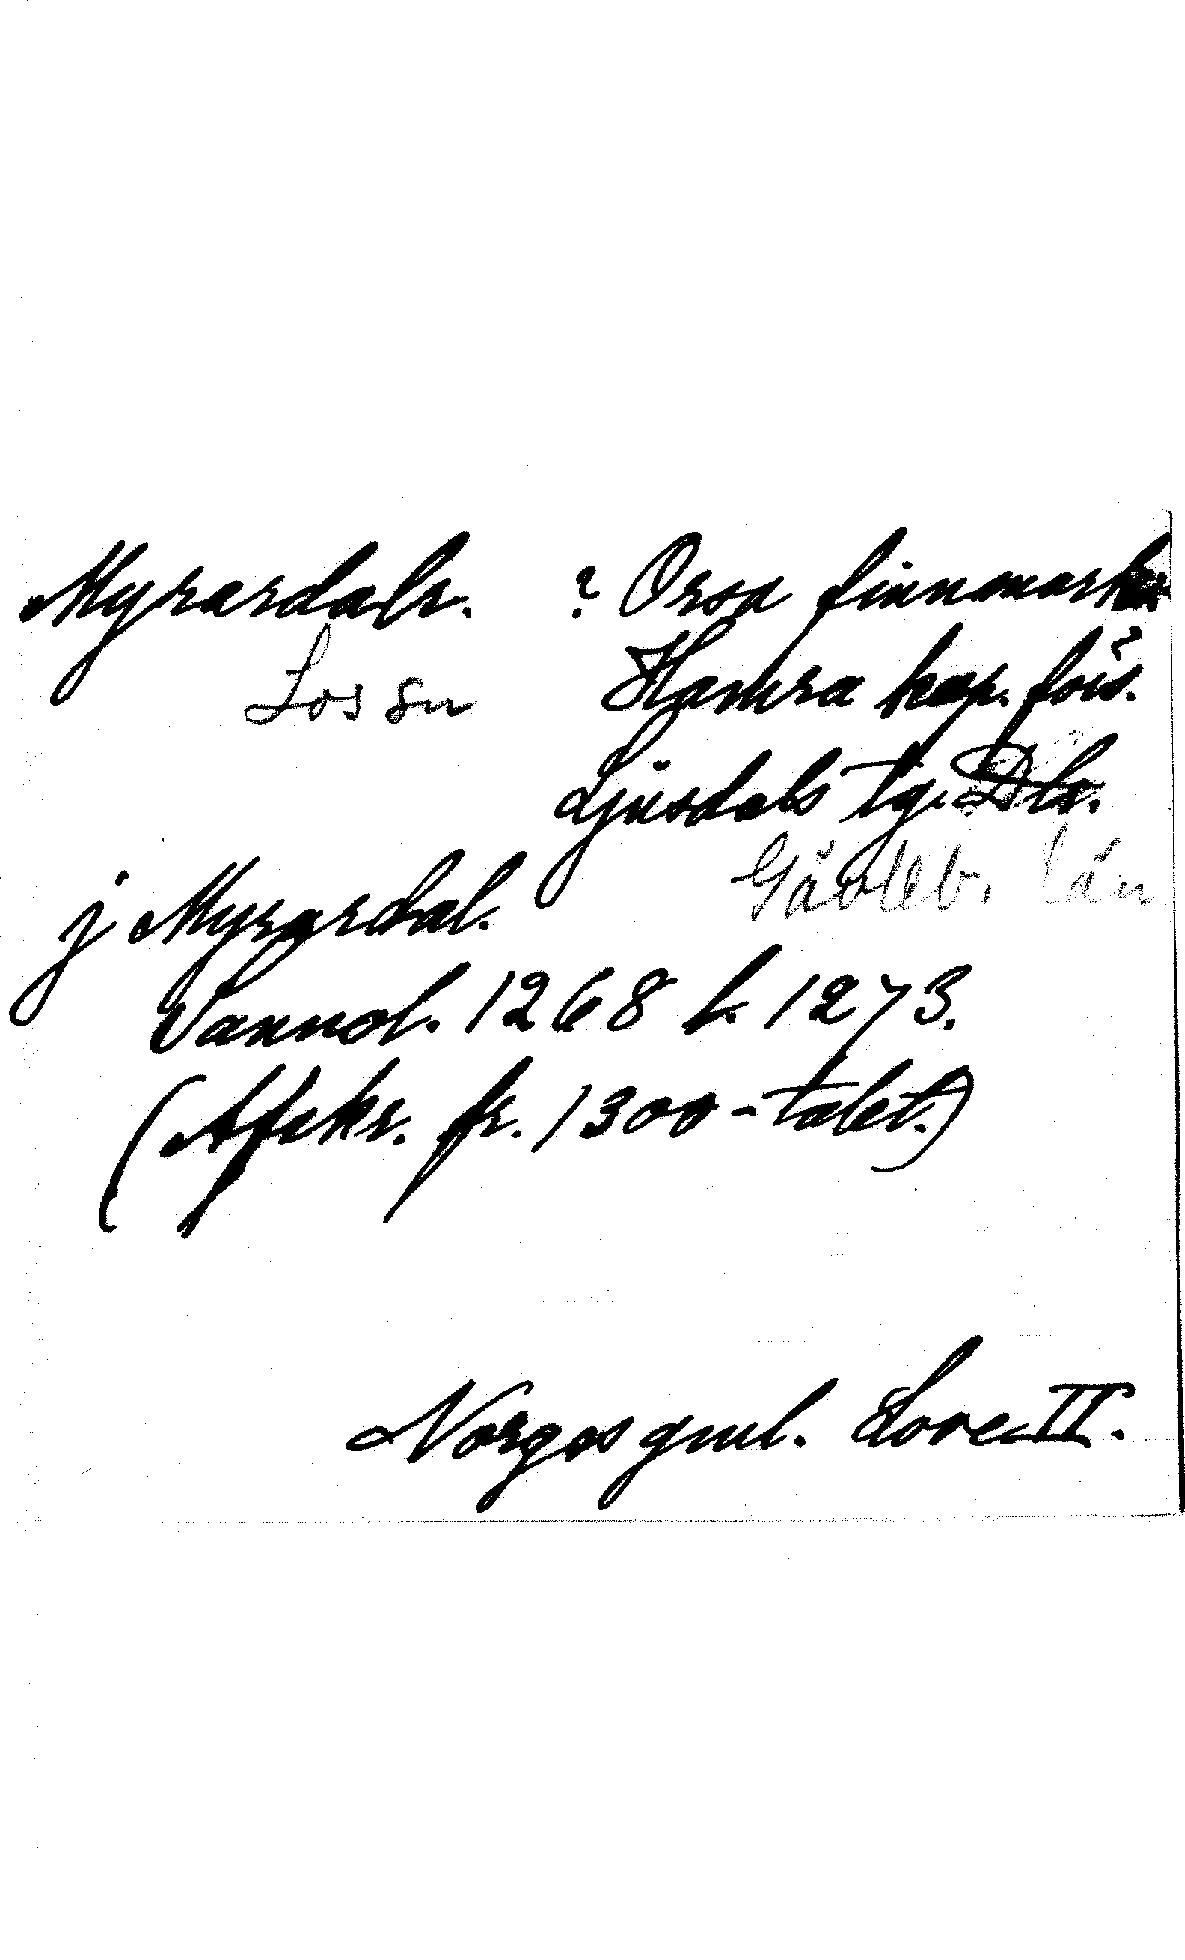 Myrardalr. ? Orsa finnmark
Los sn Hamra kap. förs.
Ljusdals tg. Dlr.
Gävleb. län
j Myrardal.
Sannol. 1268 l. 1273.
(Afskr. fr. 1300-talet.)
Norges gml. Love II.